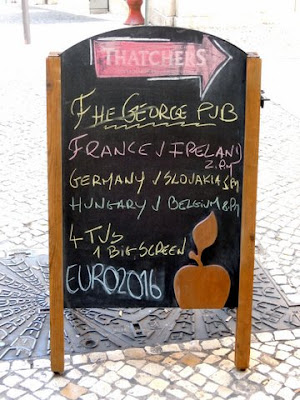 THATCHERS
THE GEORGE PUB
FRANCE / IRELAND
2.PM
GERMANY / SLOVAKIA 5PM
HUNGARY / BELGIUM 8PM
4 TVS
1 BIG SCREEN
EURO2016